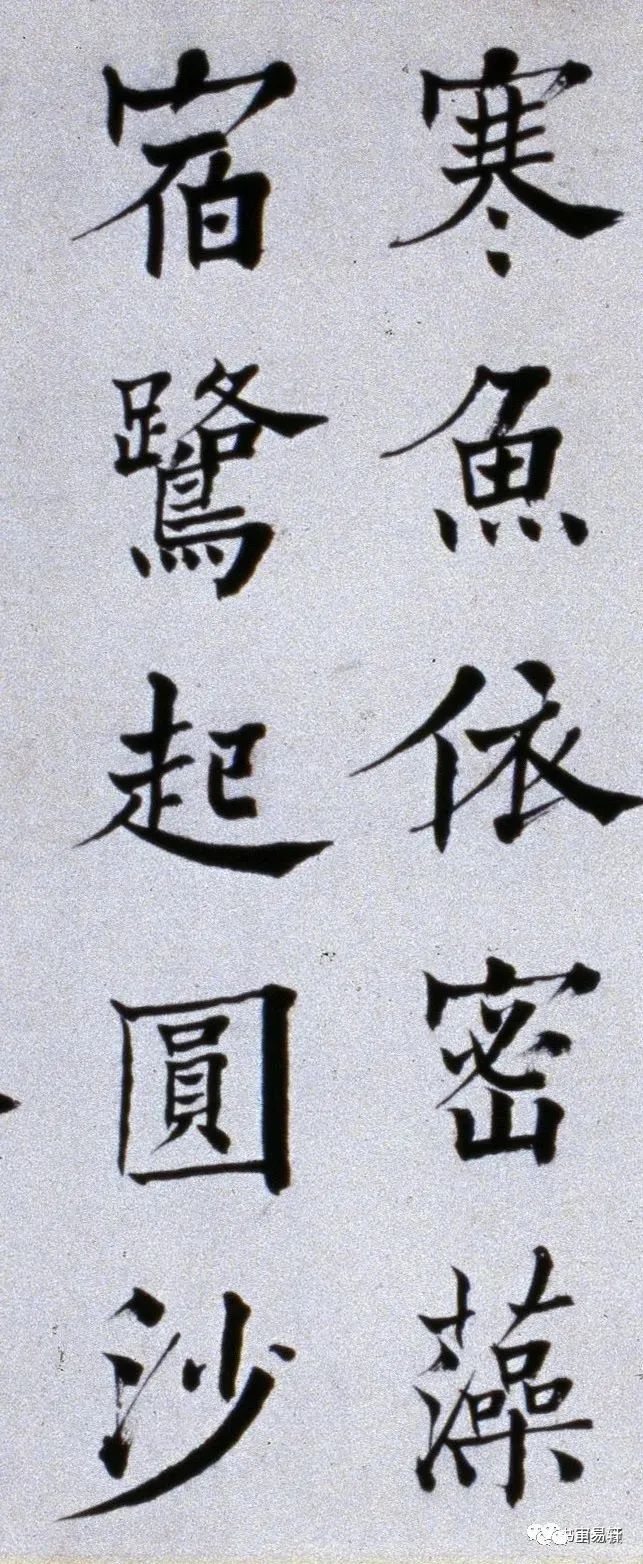 寒魚依密藻
宿鷺起圓沙